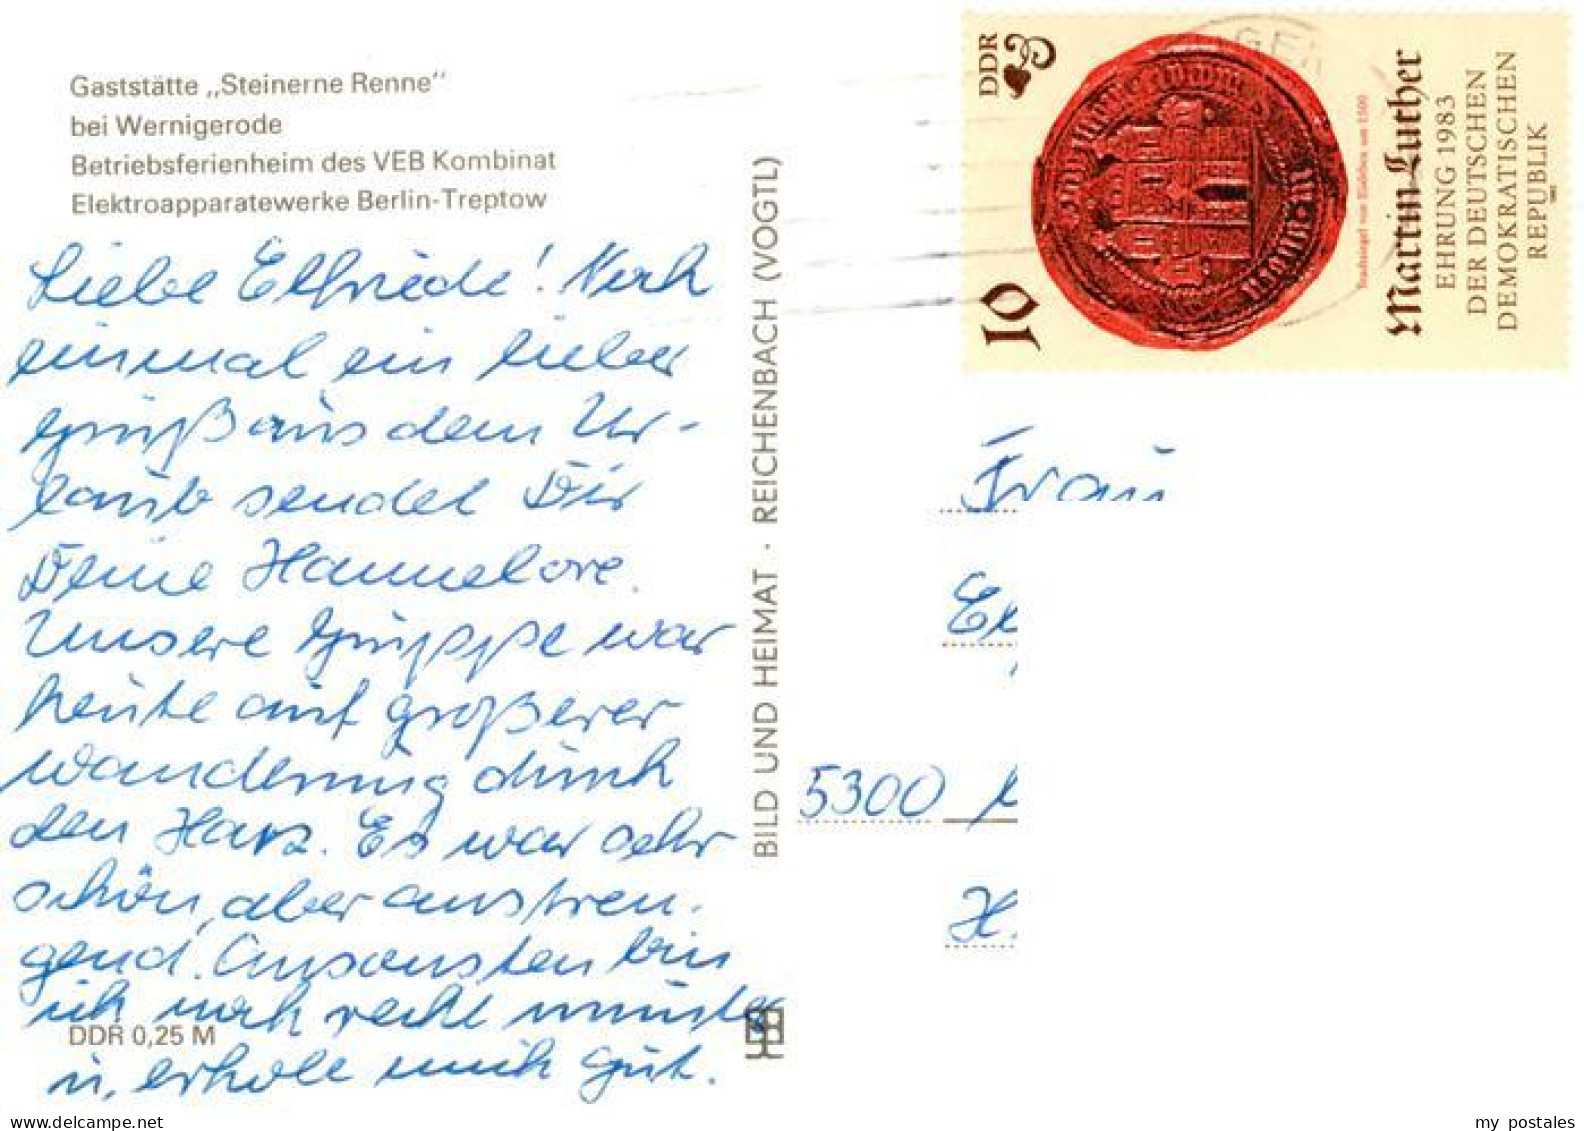 Gaststätte „Steinerne Renne"
bei Wernigerode
Betriebsferienheim des VEB Kombinat
Elektroapparatewerke Berlin-Treptow
Liebe Elfriede! Noch
einmal ein lieber
Gruß aus dem Ur-
laub sendet Dir
Deine Hannelore.
Unsere Gruppe war
heute auf großerer
Wanderung durch
den Harz. Es war sehr
schön, aber anstren-
gend. Ansonsten bin
ich noch recht munter
u. erhole mich gut.
DDR 0,25 M
BILD UND HEIMAT · REICHENBACH (VOGTL)
DDR
10
Stadtsiegel von Eisleben um 1500
Martin Luther
EHRUNG 1983
DER DEUTSCHEN
DEMOKRATISCHEN
REPUBLIK
Frau
5300
H.
my postales